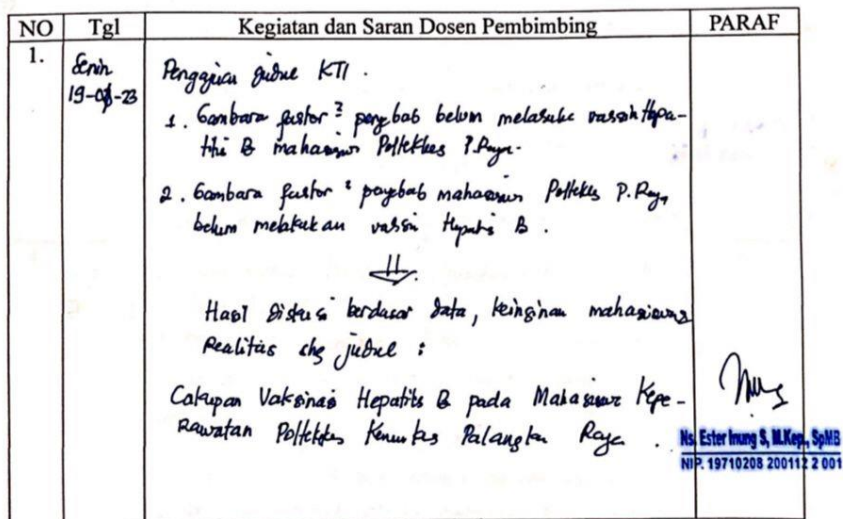 NO Tgl Kegiatan dan Saran Dosen Pembimbing PARAF
1. Senin
19-06-23
Pengajuan judul KTI.
1. Gambara faktor² penyebab belum melakuka vaksin Hepa-
titis B mahasiswa Poltekkes P.Raya.
2. Gambara faktor² penyebab mahasiswa Poltekkes P. Raya
belum melakukan vaksin Hepatitis B.
Hasil Diskusi berdasar data, keinginan mahasiswa
Realitas judul :
Cakupan Vaksinasi Hepatitis B pada Mahasiswa Kepe-
Rawatan Poltekkes Kemenkes Palangka Raya.
Ns. Ester Inung S, M.Kep., SpMB
NIP. 19710208 200112 2 001